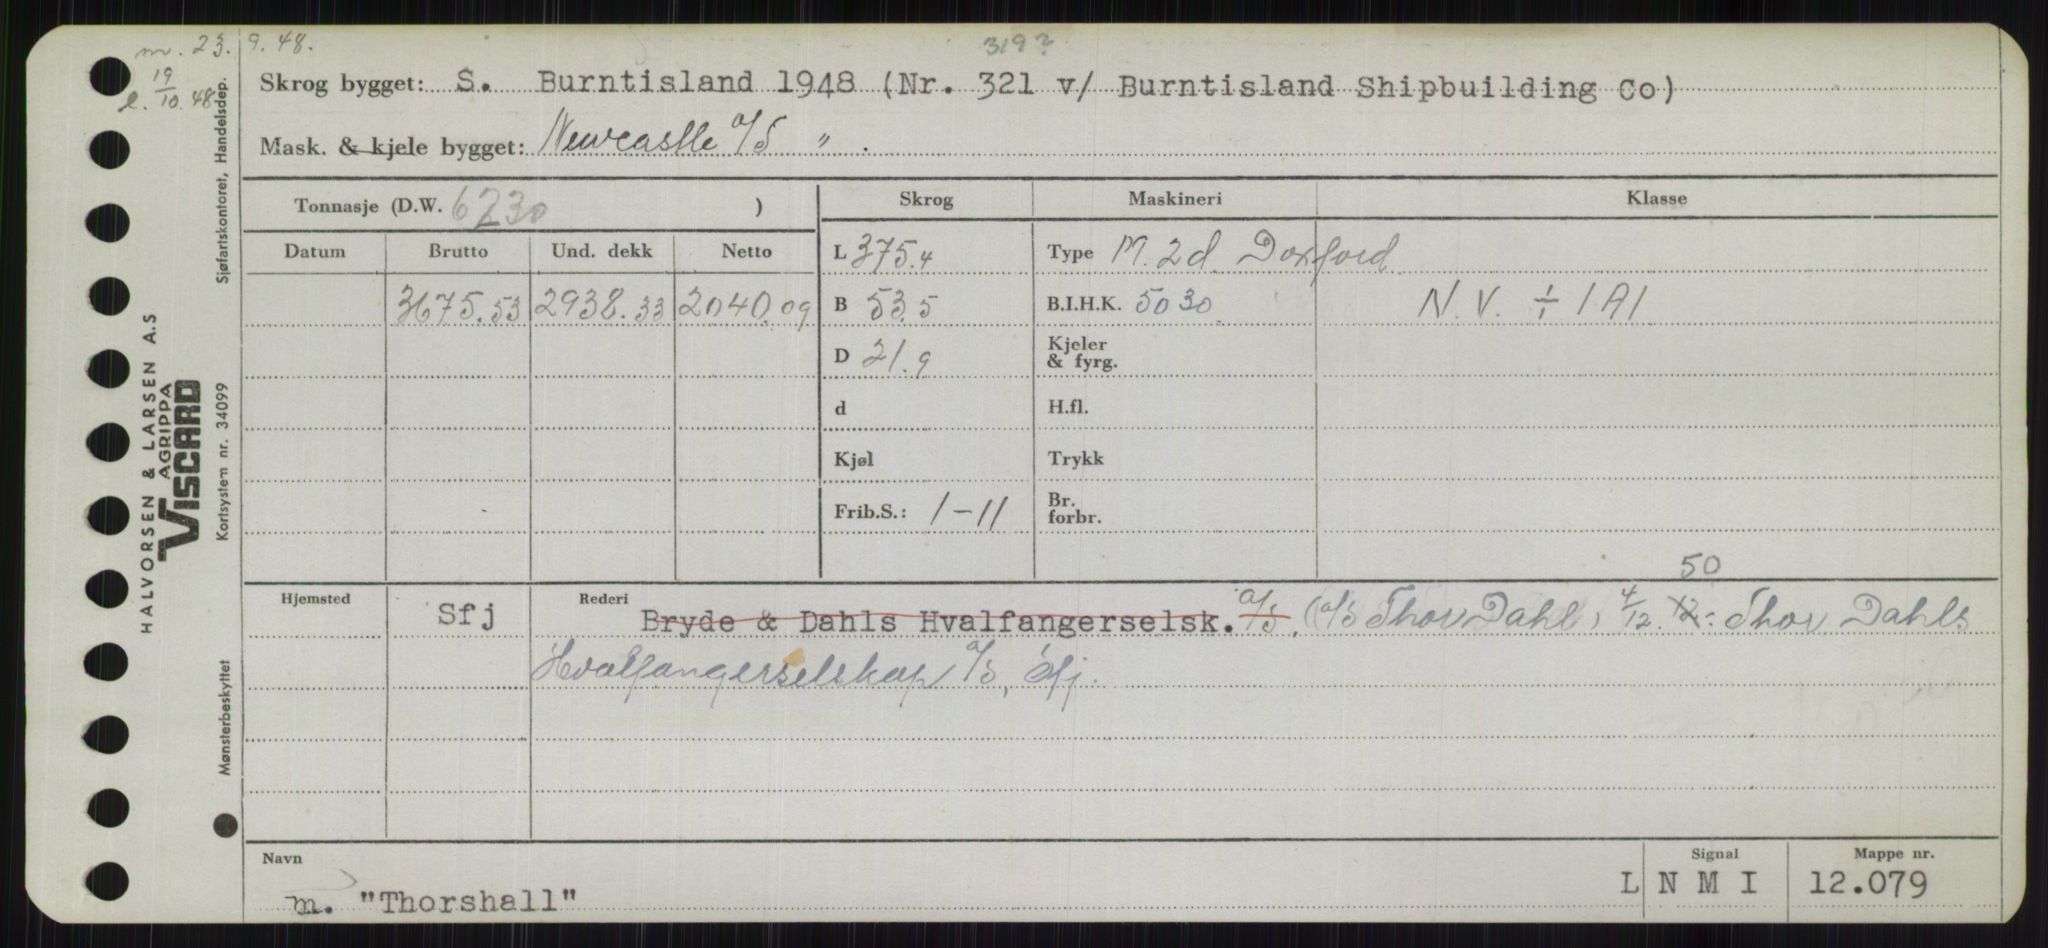 m. 23. 9. 48.
l. 19/10. 48
319?
Skrog bygget: S. Burntisland 1948 (Nr. 321 v/ Burntisland Shipbuilding Co)
Mask. & kjele bygget: Newcastle a/S " .
Tonnasje (D.W. 6230 ) Skrog Maskineri Klasse
Datum Brutto Und. dekk Netto L 375.4 Type M. 2d. Doxford
3675.53 2938.33 2040.09 B 53.5 B.I.H.K. 5030 N.V. ÷ 1A1
D 21.9 Kjeler
& fyrg.
d H.fl.
Kjøl Trykk
Frib.S.: 1-11 Br.
forbr.
50
Hjemsted Sfj Rederi Bryde & Dahls Hvalfangerselsk. a/s. (a/s Thor Dahl) 4/12. 12: Thor Dahls
Hvalfangerselskap a/s, Sfj.
Navn Signal Mappe nr.
m. "Thorshall" L N M I 12.079
HALVORSEN & LARSEN A.S
AGRIPPA
VISCARD
Mønsterbeskyttet Kortsystem nr. 34099 Sjøfartskontoret, Handelsdep.